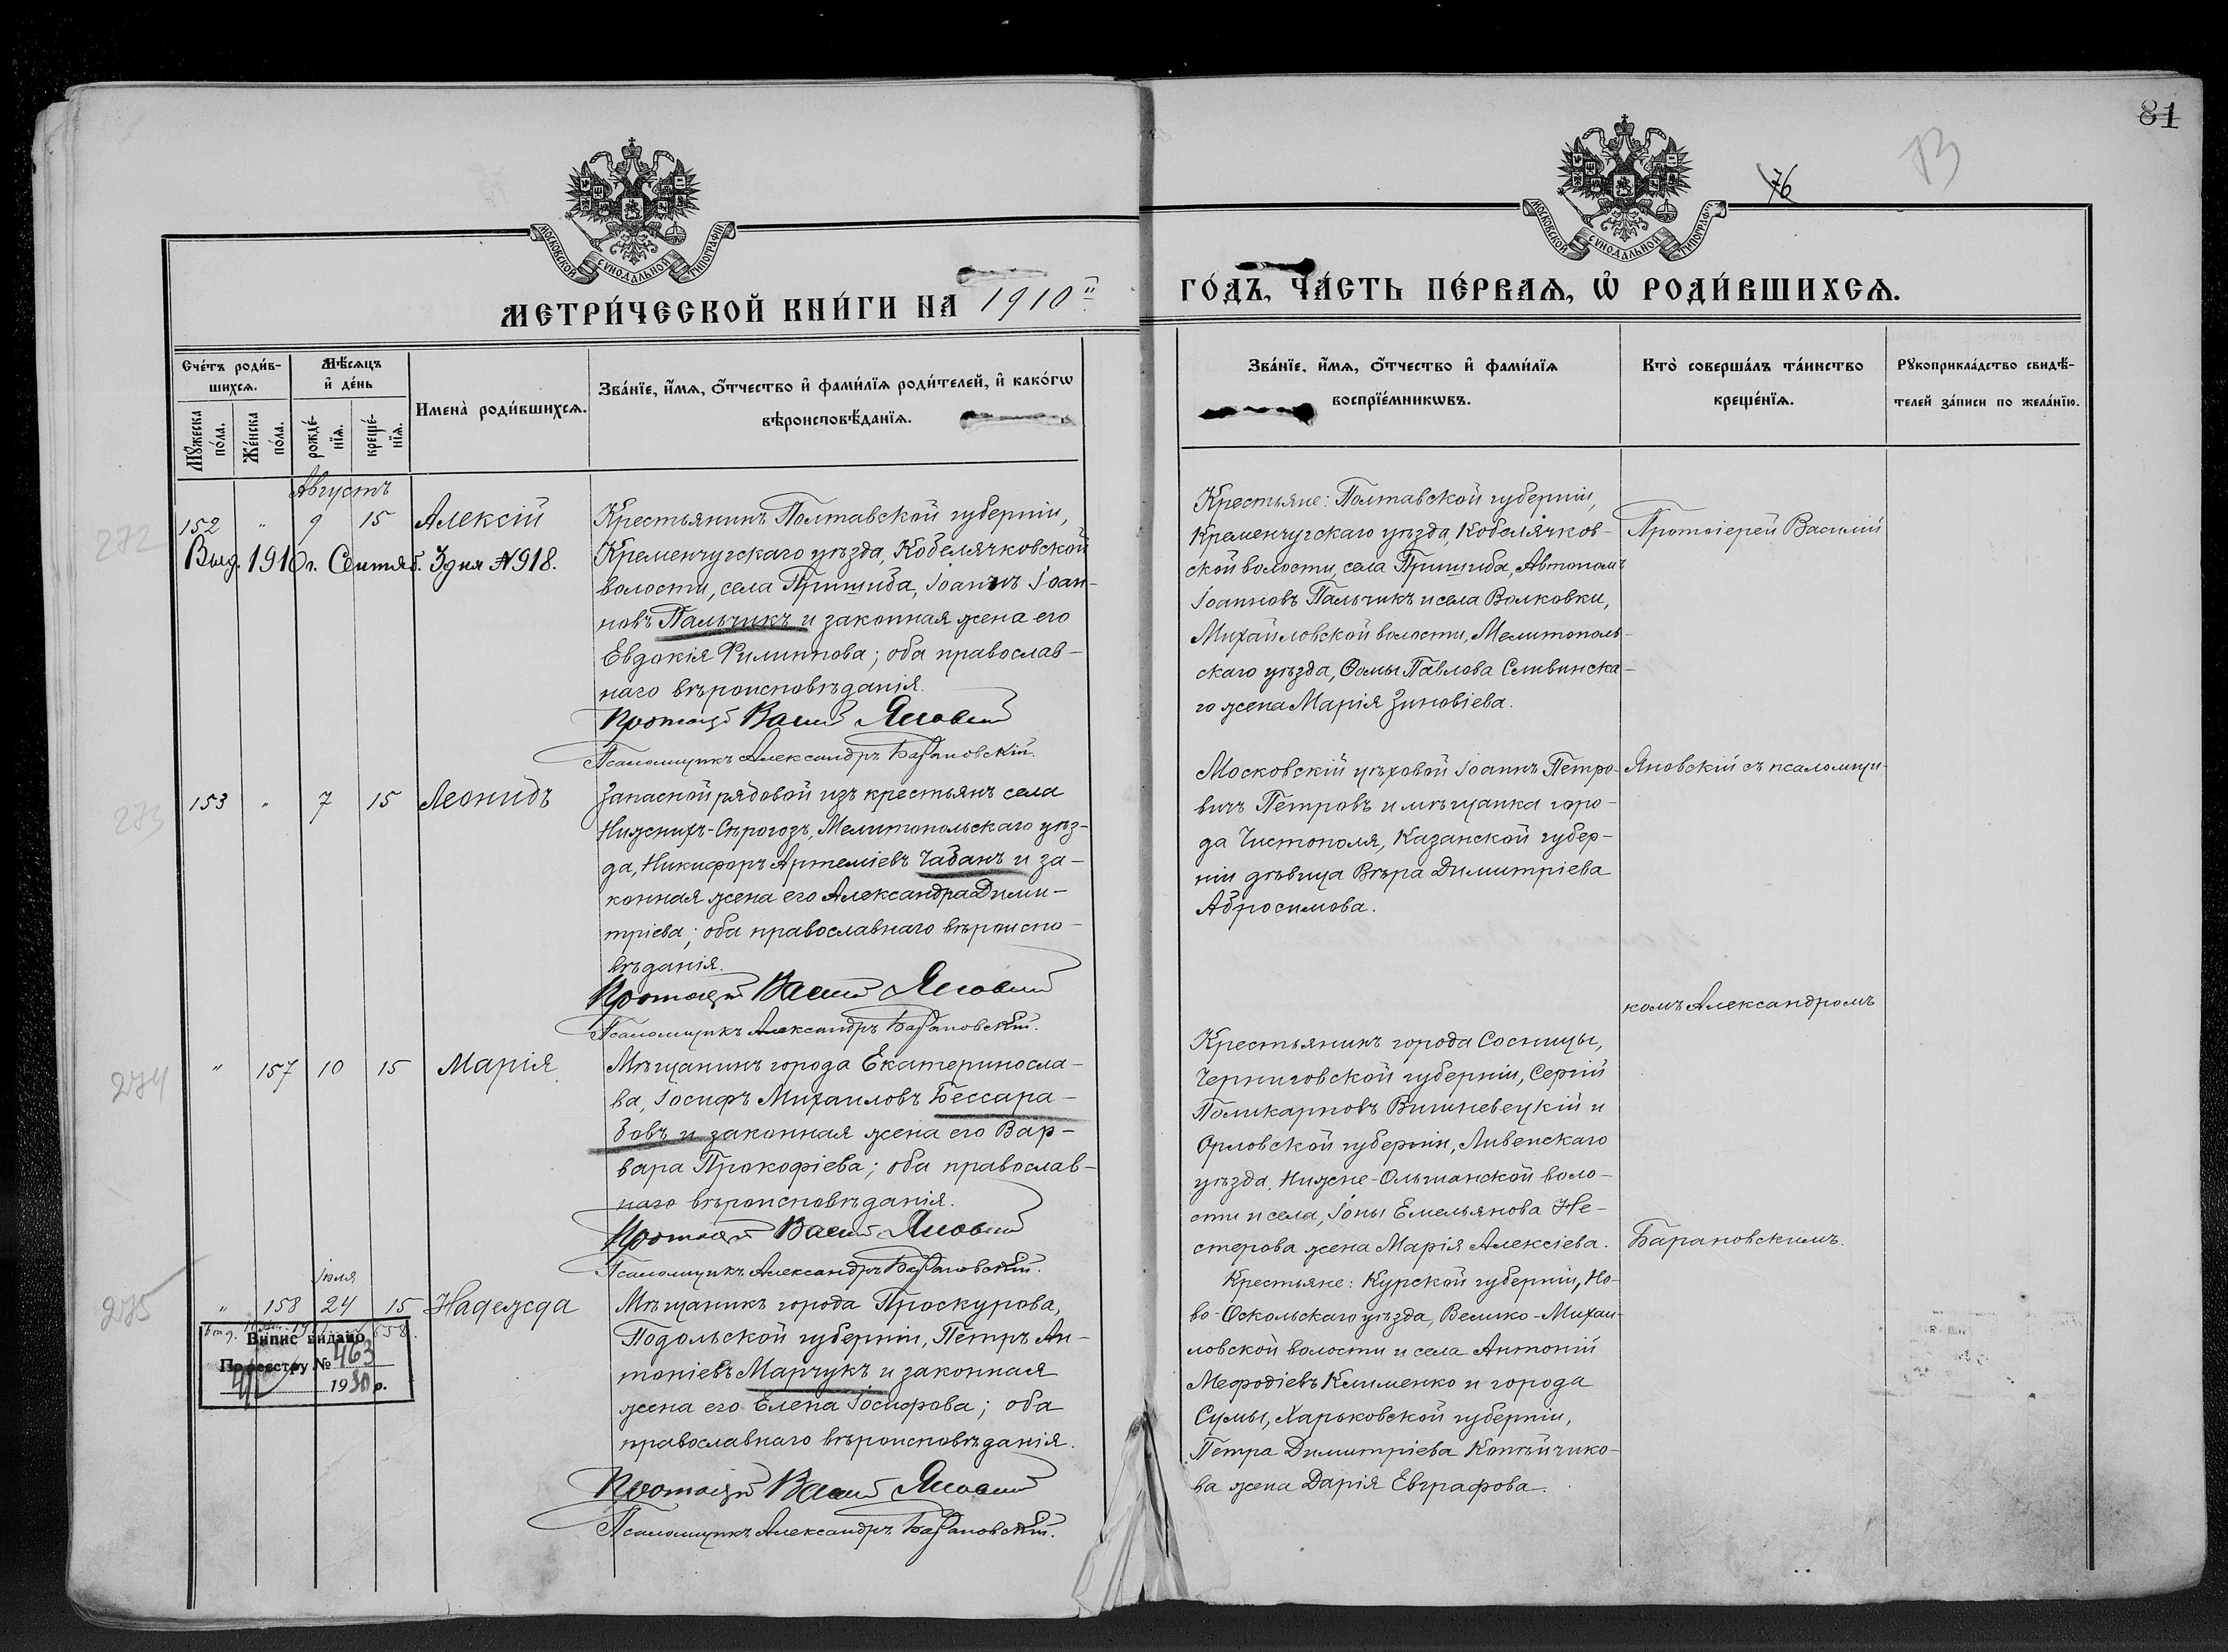 81
13
76
МОСКОВСКОЙ СѴНОДАЛЬНОЙ ТИПОГРАФІИ
МОСКОВСКОЙ СѴНОДАЛЬНОЙ ТИПОГРАФІИ
МЕТРИ́ЧЕСКОЙ КНИ́ГИ НА 1910й
ГО́ДЪ, ЧА́СТЬ ПЕ́РВАѦ, Ѡ҆ РОДИ́ВШИХСѦ.
Сче́тъ роди́в-
шихсѧ.
Мꙋ́жеска
по́ла.
Же́нска
по́ла.
Мѣ́сѧцъ
и҆ де́нь
рожде́-
нїѧ.
креще́-
нїѧ.
Имена̀ роди́вшихсѧ.
Зва́нїе, и҆́мѧ, ѻ҆́тчество и҆ фами́лїѧ роди́телей, и҆ како́гѡ
вѣроисповѣ́данїѧ.
Зва́нїе, и҆́мѧ, ѻ҆́тчество и҆ фами́лїѧ
воспрїе́мникѡвъ.
Кто̀ соверша́лъ та́инство
креще́нїѧ.
Рꙋкоприкла́дство свидѣ́-
телей за́писи по жела́нїю.
Августъ
272
152 " 9 15 Алексій
Выд. 1910 г. Сентяб. 3 дня №918.
Крестьянинъ Полтавской губерніи,
Кременчугскаго уѣзда, Кобелячковской
волости, села Пришиба, Іоаннъ Іоан-
новъ Пальчикъ и законная жена его
Евдокія Филиппова; оба православ-
наго вѣроисповѣданія.
Протоіер Васил Яновскій
Псаломщикъ Александръ Барановскій.
Крестьяне: Полтавской губерніи,
Кременчугскаго уѣзда, Кобелячков-
ской волости, села Пришиба, Автономъ
Іоанновъ Пальчикъ и села Волковки,
Михайловской волости, Мелитополь-
скаго уѣзда, Ѳомы Павлова Сливинска-
го жена Марія Зиновіева.
Протоіерей Василій
273
153 " 7 15 Леонидъ
Запасной рядовой изъ крестьянъ села
Нижнихъ-Сѣрогозъ, Мелитопольскаго уѣз-
да, Никифоръ Артеміевъ Чабанъ и за-
конная жена его Александра Дими-
тріева; оба православнаго вѣроиспо-
вѣданія.
Протоіерей Василій Яновскій
Псаломщикъ Александръ Барановскій.
Московскій цѣховой Іоаннъ Петро-
вичъ Петровъ и мѣщанка горо-
да Чистополя, Казанской губер-
ніи дѣвица Вѣра Димитріева
Абросимова.
Яновскій съ псаломщи-
комъ Александромъ
274
" 157 10 15 Марія
Мѣщанинъ города Екатеринсла-
ва, Іосифъ Михаиловъ Бессара-
бовъ и законная жена его Вар-
вара Прокофіева; оба православ-
наго вѣроисповѣданія.
Протоіерей Василій Яновскій
Псаломщикъ Александръ Барановскій.
Крестьянинъ города Сосницы,
Черниговской губерніи, Сергій
Поликарповъ Вишневецкій и
Орловской губерніи, Ливенскаго
уѣзда, Нижне-Ольшанской воло-
сти и села, Іоны Емельянова Не-
стерова жена Марія Алексіева.
Барановскимъ.
Іюля
275
" 158 24 15 Надежда
Випис видано
По реестру № 463
1930 р.
Мѣщанинъ города Проскурова,
Подольской губерніи, Петръ Ан-
тоніевъ Марчукъ и законная
жена его Елена Іосифова; оба
православнаго вѣроисповѣданія.
Протоіерей Василій Яновскій
Псаломщикъ Александръ Барановскій.
Крестьяне: Курской губерніи, Но-
во-Оскольскаго уѣзда, Велико-Михаи-
ловской волости и села Антоній
Мефодіевъ Клименко и города
Сумы, Харьковской губерніи,
Петра Димитріева Копѣйчико-
ва жена Дарія Евграфова.